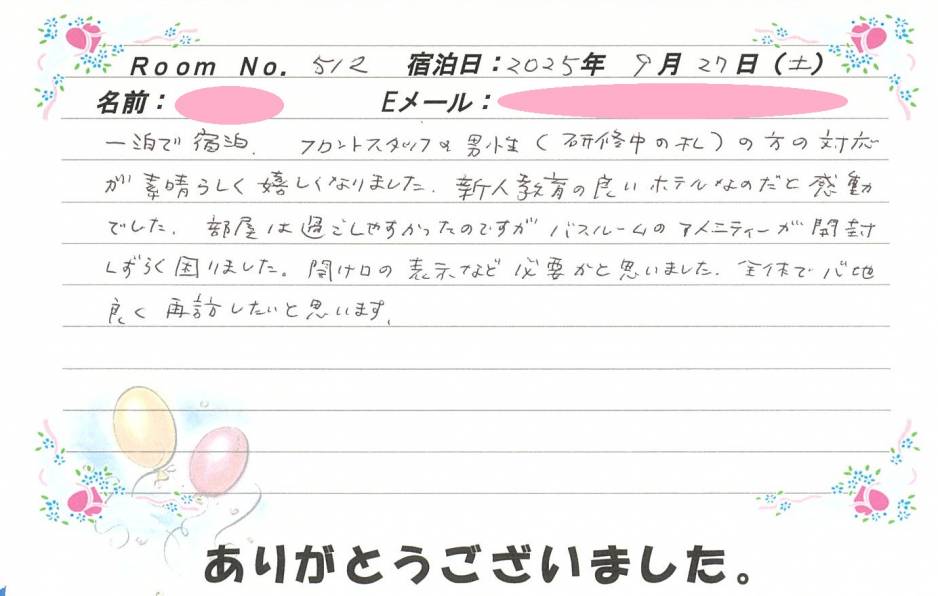 Room No. 512 宿泊日：2025年 9月 27日（土）
名前： Eメール：
一泊で宿泊. フロントスタッフの男性（研修中の札）の方の対応
が素晴らしく嬉しくなりました. 新人教育の良いホテルなのだと感動
でした. 部屋は過ごしやすかったのですが バスルームのアメニティーが開封
しずらく困りました。開け口の表示など必要かと思いました. 全体で心地
良く再訪したいと思います.
ありがとうございました。